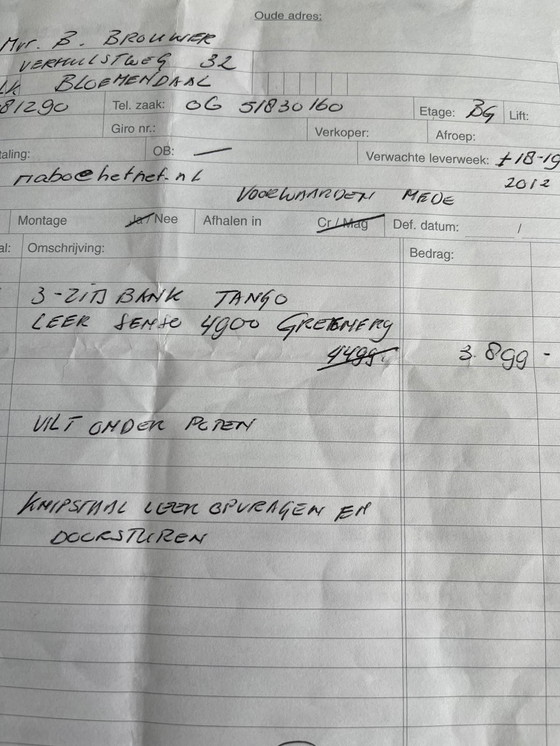 Oude adres:
Mvr. B. BROUWER
VERHULSTWEG 32
LK BLOEMENDAAL
81290 Tel. zaak: 06 51830160 Etage: BG Lift:
Giro nr.: Verkoper: Afroep:
taling: OB: — Verwachte leverweek: ±18-19
2012
mabo@hetnet.nl
VOORWAARDEN MEDE
Montage Ja/Nee Afhalen in Cr/Mag Def. datum: /
al: Omschrijving: Bedrag:
3-ZITS BANK TANGO
LEER SENSO 4900
4499.- 3.899 -
VILT ONDER POTEN
KNIPSTAAL LEER OPVRAGEN EN
DOORSTUREN